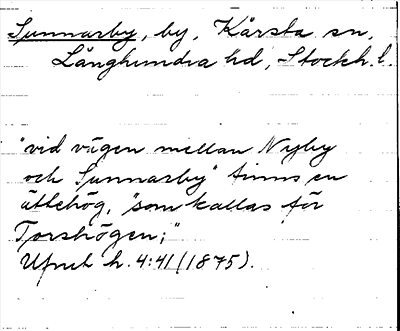 Sunnarby, by, Kårsta sn,
Långhundra hd, Stockh. l.
"vid vägen mellan Nyby
och Sunnarby" finns en
ättehög, "som kallas för
Torshögen;"
Upnet h. 4:41 (1875).